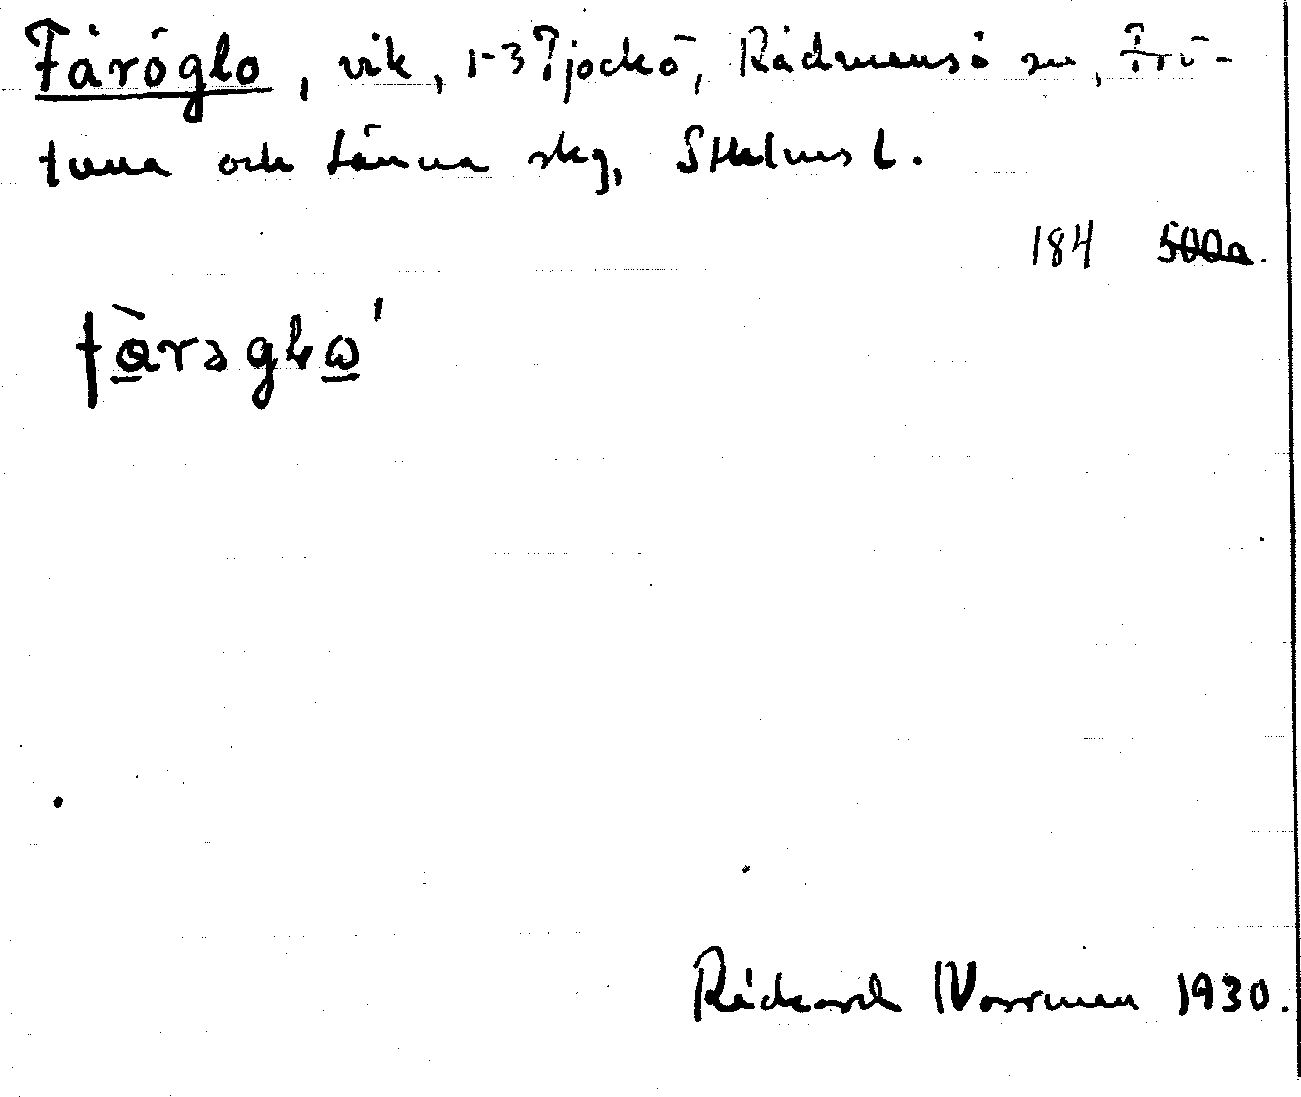 Fåröglo, vik, 1-3 Tjockö, Rådmansö sn, Frö-
tuna och Länna skg, Sthlms l.
184 500a.
fàrəglω'
Rickard Norrman 1930.